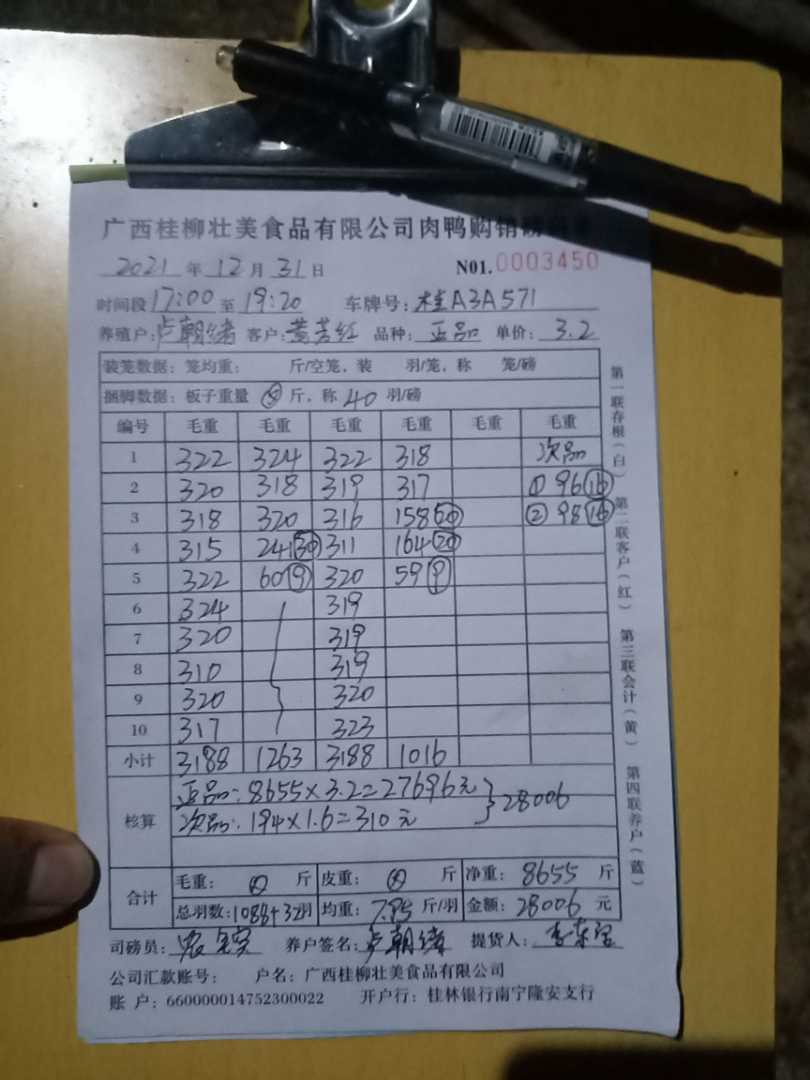 广西桂柳壮美食品有限公司肉鸭购销磅
2021 年 12 月 31 日 N01.0003450
时间段 17:00 至 19:20 车牌号: 桂A3A571
养殖户: 卢朝绪 客户: 黄芳红 品种: 正品 单价: 3.2
装笼数据: 笼均重: 斤/空笼, 装 羽/笼, 称 笼/磅
捆脚数据: 板子重量 斤, 称 40 羽/磅
编号 毛重 毛重 毛重 毛重 毛重 毛重
1 322 324 322 318 次品
2 320 318 319 317 ① 96 ⑯
3 318 320 316 158 ⑳ ② 98 ⑯
4 315 241 ㉚ 311 164 ⑳
5 322 60 ⑨ 320 59 ⑨
6 324 319
7 320 319
8 310 319
9 320 320
10 317 323
小计 3188 1263 3188 1016
核算 正品: 8655×3.2=27696元
次品: 194×1.6=310元 } 28006
合计 毛重: 斤 皮重: 斤 净重: 8655 斤
总羽数: 1088+32羽 均重: 7.95 斤/羽 金额: 28006 元
司磅员: 养户签名: 卢朝绪 提货人:
公司汇款账号: 户名: 广西桂柳壮美食品有限公司
账 户: 660000014752300022 开户行: 桂林银行南宁隆安支行
第一联存根(白) 第二联客户(红) 第三联会计(黄) 第四联养户(蓝)